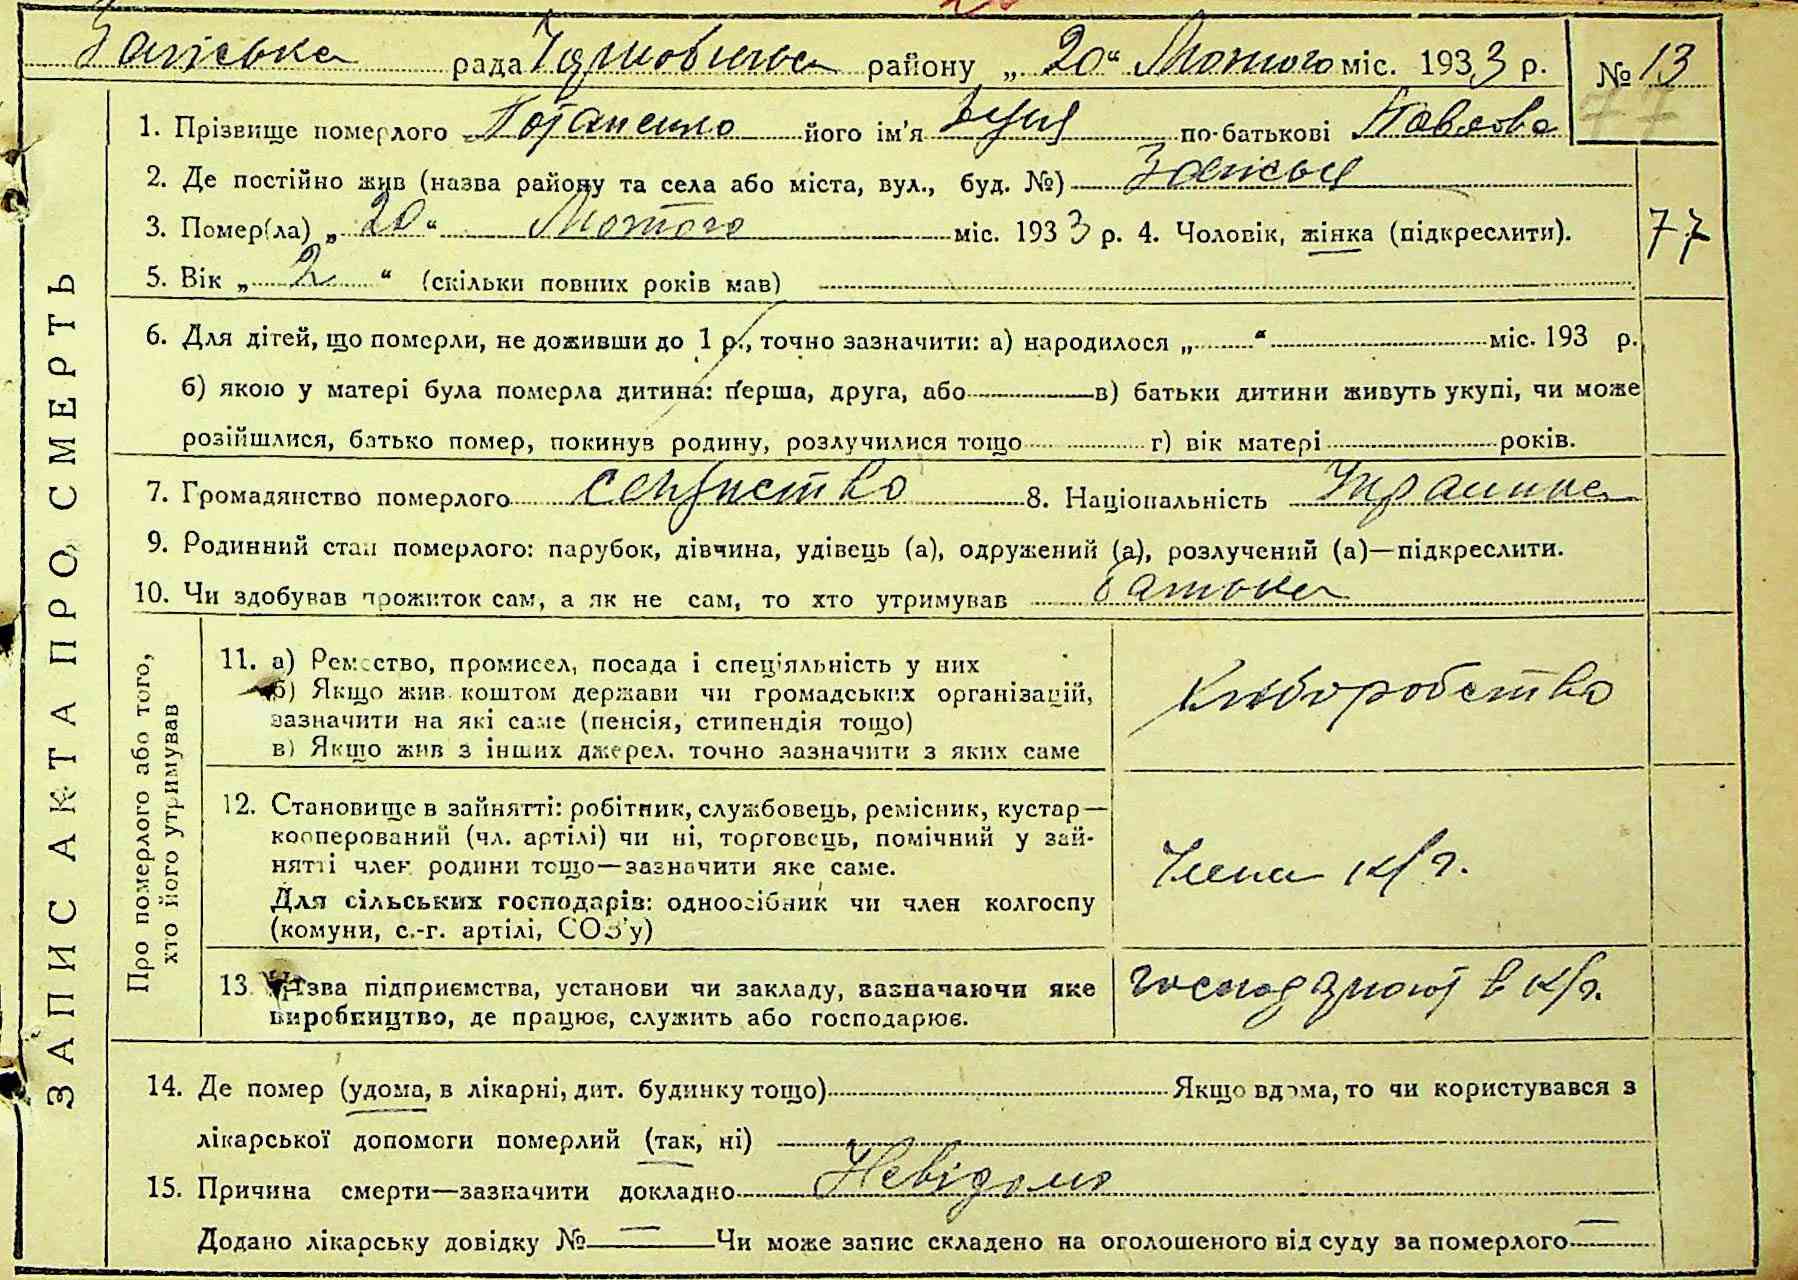 рада району „ 20 “ Лютого міс. 1933 р. № 13
77
1. Прізвище померлого його ім'я по-батькові Павлова
2. Де постійно жив (назва району та села або міста, вул., буд. №)
3. Помер(ла) „ 20 “ Лютого міс. 1933 р. 4. Чоловік, жінка (підкреслити).
77
5. Вік „ 2 “ (скільки повних років мав)
6. Для дітей, що померли, не доживши до 1 р., точно зазначити: а) народилося „ “ міс. 193 р.
б) якою у матері була померла дитина: перша, друга, або в) батьки дитини живуть укупі, чи може
розійшлися, батько помер, покинув родину, розлучилися тощо г) вік матері років.
7. Громадянство померлого 8. Національність Українка
9. Родинний стан померлого: парубок, дівчина, удівець (а), одружений (а), розлучений (а)—підкреслити.
10. Чи здобував прожиток сам, а як не сам, то хто утримував батько
ЗАПИС АКТА ПРО СМЕРТЬ
Про померлого або того,
хто його утримував
11. а) Ремество, промисел, посада і спеціяльність у них
б) Якщо жив коштом держави чи громадських організацій,
зазначити на які саме (пенсія, стипендія тощо)
в) Якщо жив з інших джерел, точно зазначити з яких саме
Хліборобство
12. Становище в зайнятті: робітник, службовець, ремісник, кустар—
кооперований (чл. артілі) чи ні, торговець, помічний у зай-
нятті член родини тощо—зазначити яке саме.
Для сільських господарів: одноосібник чи член колгоспу
(комуни, с.-г. артілі, СОЗ'у)
Члена к/г.
13. Назва підприємства, установи чи закладу, зазначаючи яке
виробництво, де працює, служить або господарює.
в к/г.
14. Де помер (удома, в лікарні, дит. будинку тощо) Якщо вдома, то чи користувався з
лікарської допомоги померлий (так, ні)
15. Причина смерти—зазначити докладно Невідомо
Додано лікарську довідку № — Чи може запис складено на оголошеного від суду за померлого —